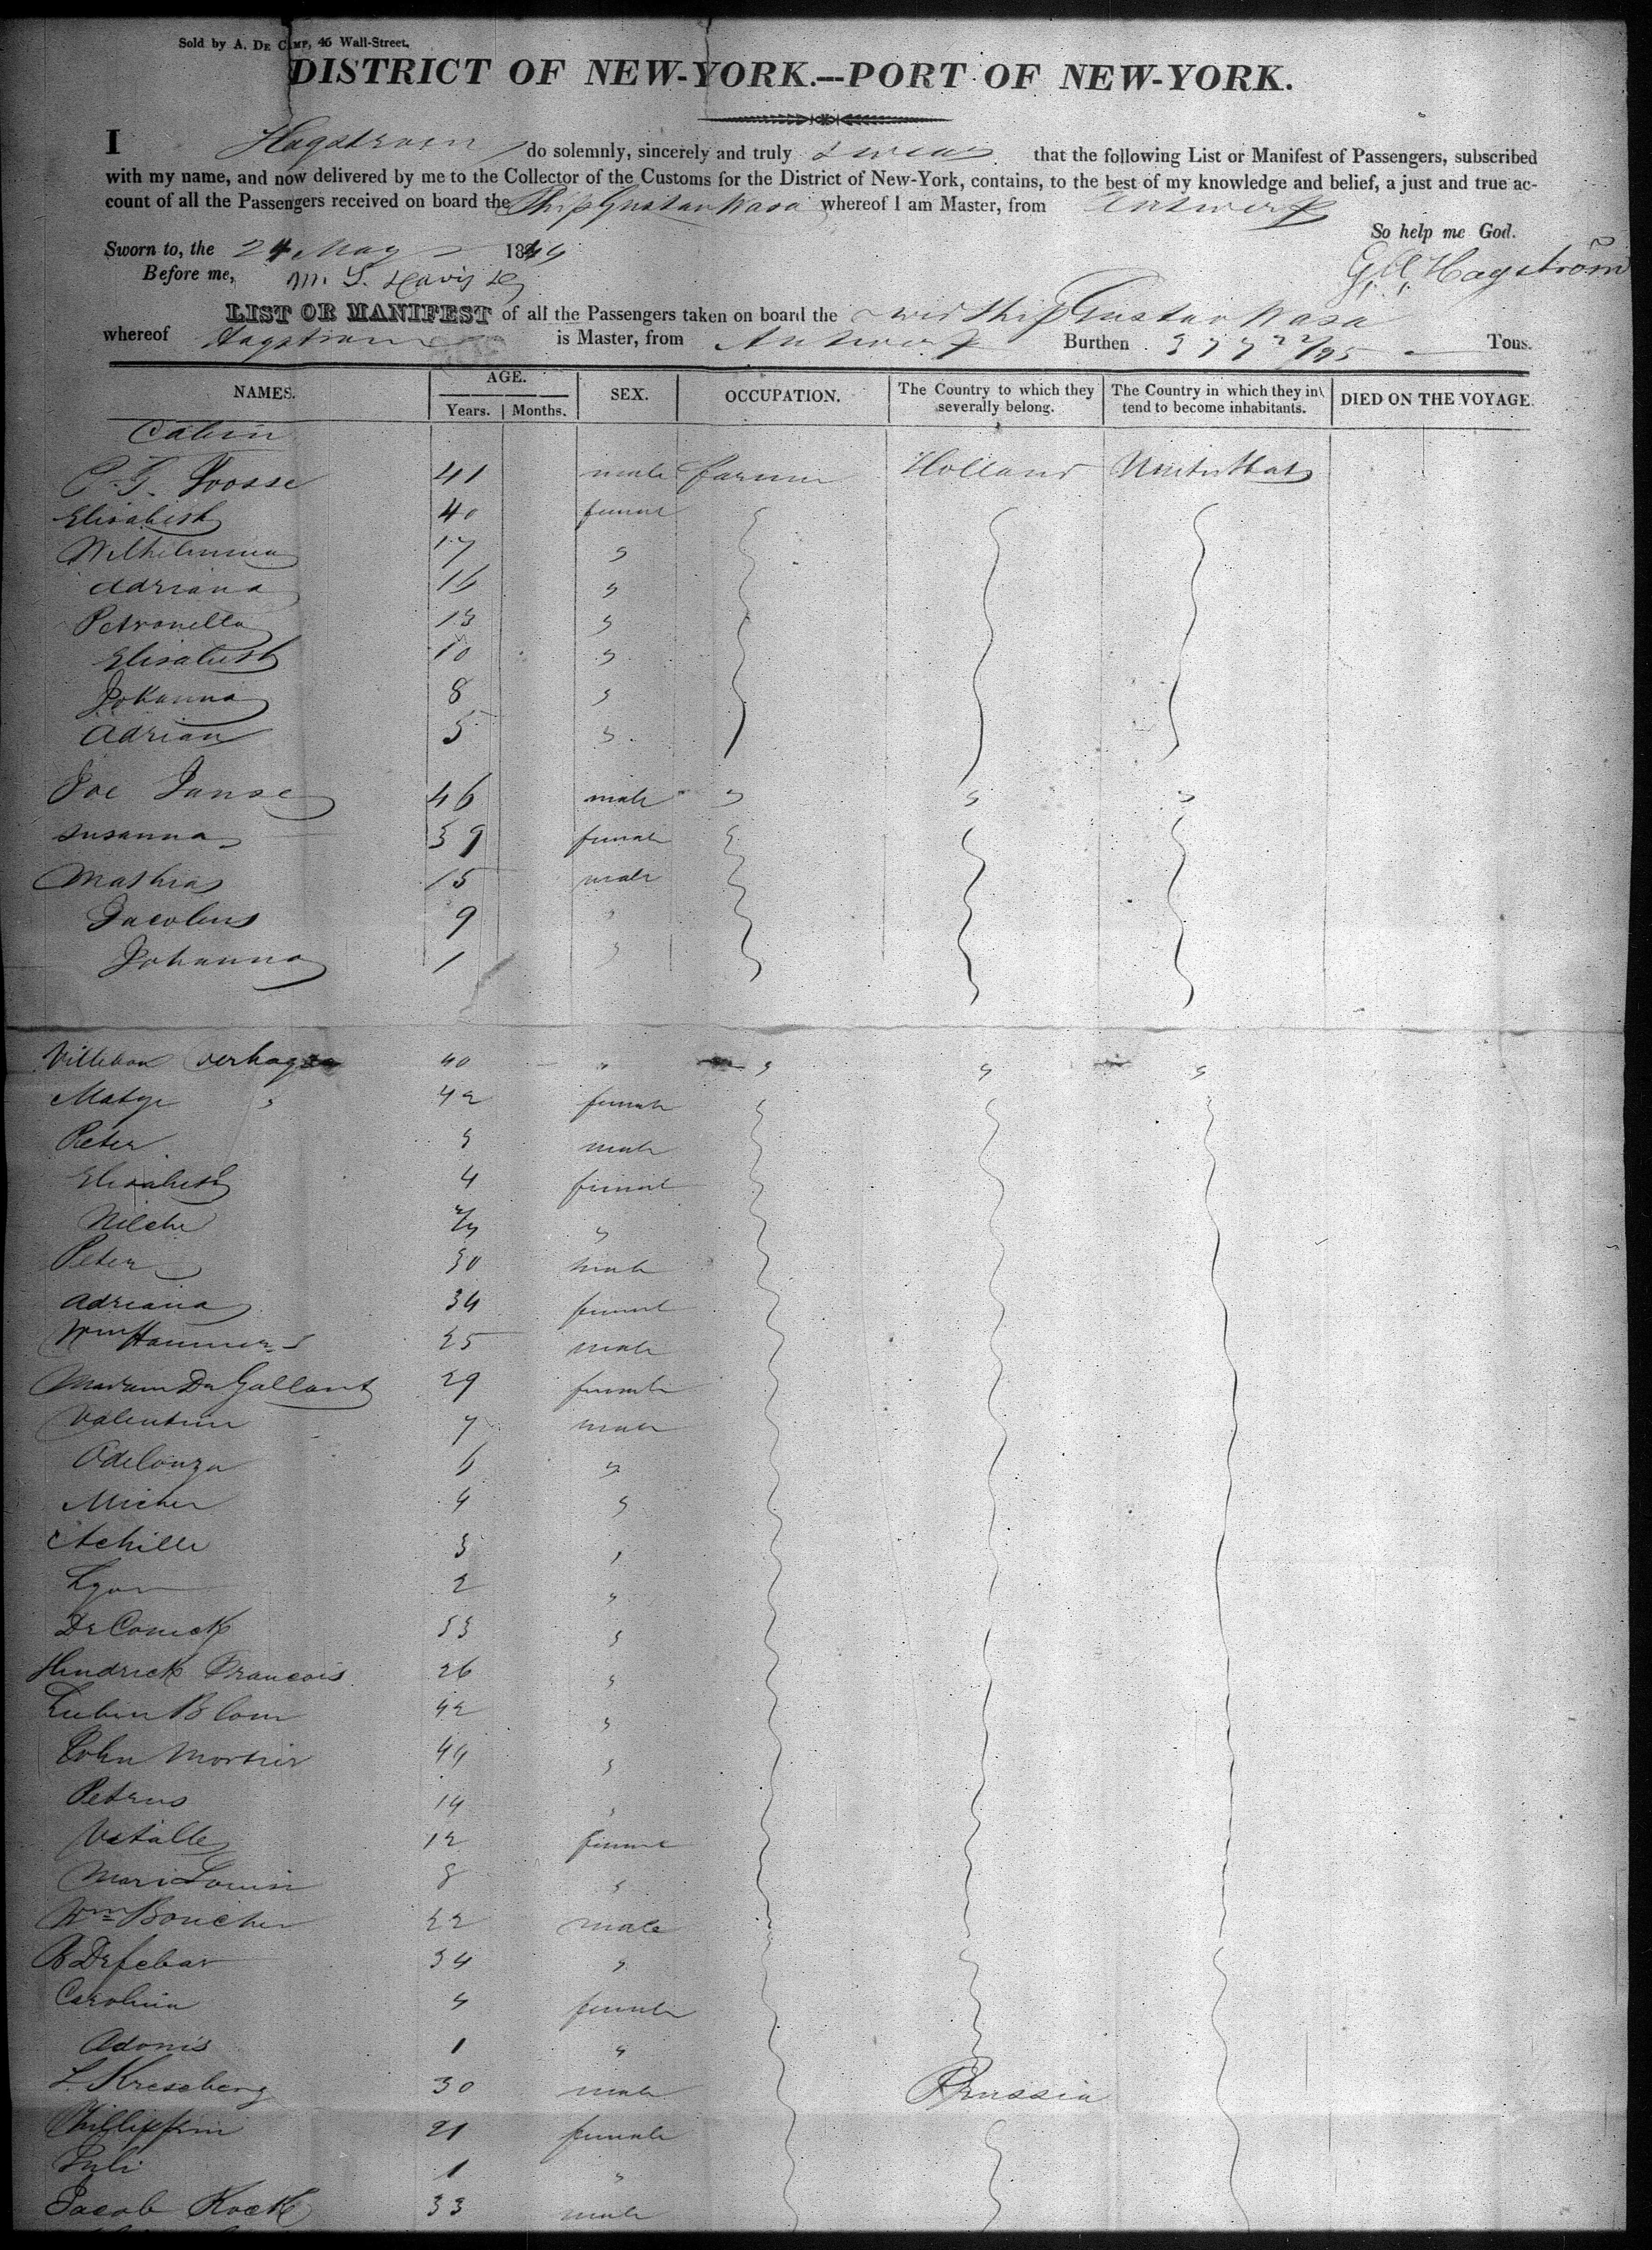 Sold by A. De Camp, 46 Wall-Street.
DISTRICT OF NEW-YORK.—PORT OF NEW-YORK.
I Hagstrom do solemnly, sincerely and truly swear that the following List or Manifest of Passengers, subscribed
with my name, and now delivered by me to the Collector of the Customs for the District of New-York, contains, to the best of my knowledge and belief, a just and true ac-
count of all the Passengers received on board the Ship Gustav Wasa whereof I am Master, from Antwerp
So help me God.
Sworn to, the 24 May 1844
Hagström
Before me,
LIST OR MANIFEST of all the Passengers taken on board the Ship Gustav Wasa
whereof Hagstrom is Master, from Antwerp Burthen 377 22/95 Tons.
NAMES. AGE. Years. Months. SEX. OCCUPATION. The Country to which they severally belong. The Country in which they intend to become inhabitants. DIED ON THE VOYAGE.
Cabin
41 male farmer Holland United States
Elisabeth 40 female
Wilhelmina 17 "
Adriana 16 "
Petronella 13 "
Elisabeth 10 "
Johanna 8 "
Adrian 5 "
Janse 46 male " " "
Susanna 39 female
Mathias 15 male
Jacobus 9 "
Johanna 1 "
Verhage 40 " " " "
Matje " 42 female
Pieter male
Elisabeth 4 female
"
Peter 30 male
Adriana 34 female
Wm Hammers 25 male
Madam De Gallant 29 female
Valentin 7 male
6 "
4 "
Achille 3 "
2 "
De Conick 53 "
Hendrick Francois 26 "
Lubin Blom 42 "
John Mortier 44 "
Petrus 14 "
Vitalle 12 female
Mari Louise 8 "
Wm Boucher 22 male
34 "
Carolina female
Adonis 1 "
L. Kreseberg 30 male Prussia
Phillippin 21 female
Juli 1 "
Jacob Kock 33 male